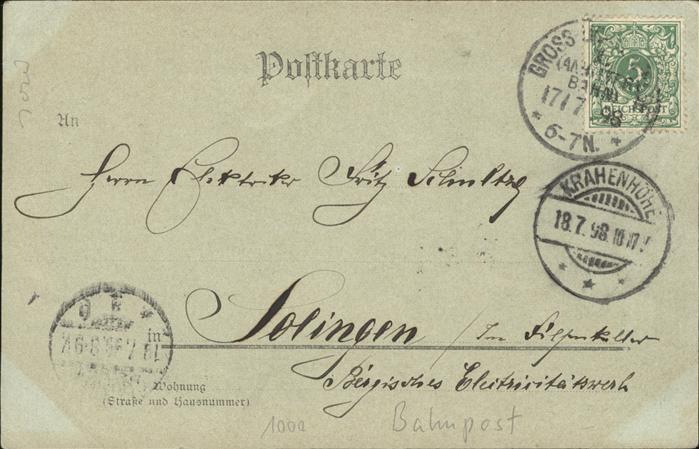 Postkarte
GROSS
(ANHALTER
BAHNH
17/7
98
* 6-7N. *
5
REICHSPOST
An
Herrn Elektriker Fritz Schultze
KRAHENHÖHE
18.7.98.
Solingen / Im
in
Bergisches Electricitätswerk
Wohnung
(Straße und Hausnummer)
1000
Bahnpost